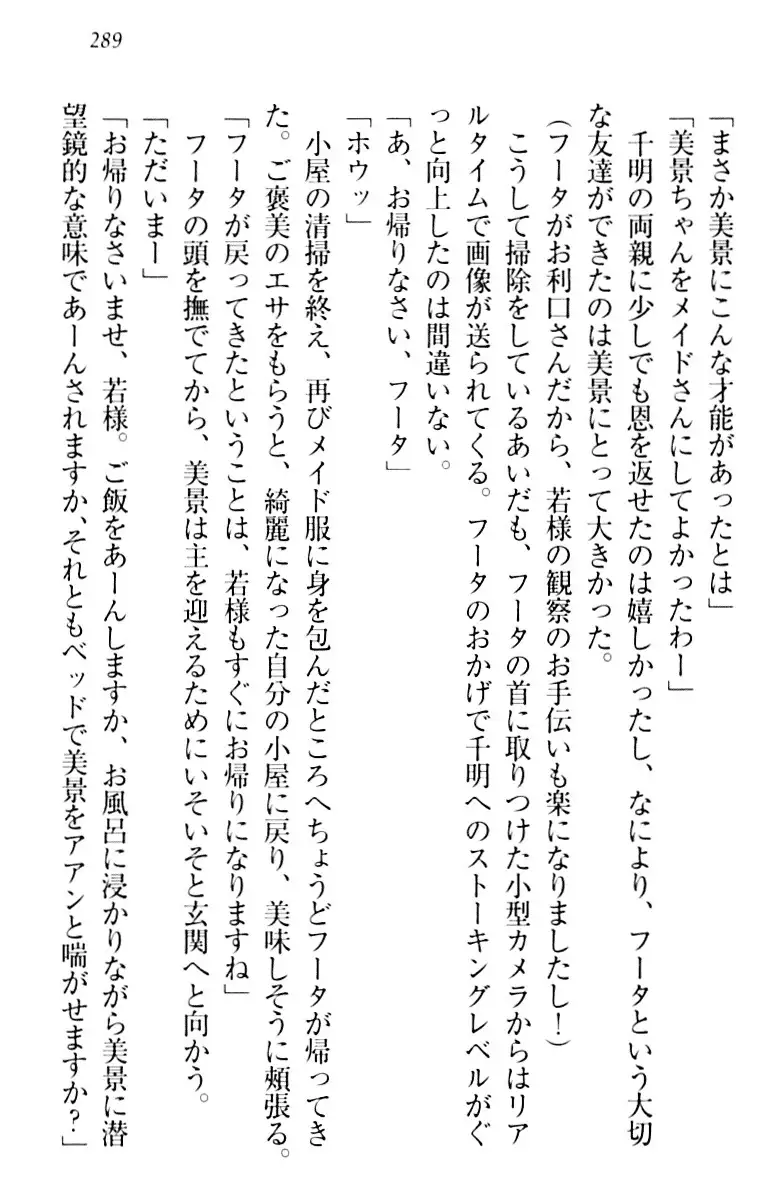 289
「まさか美景にこんな才能があったとは」
「美景ちゃんをメイドさんにしてよかったわー」
千明の両親に少しでも恩を返せたのは嬉しかったし、なにより、フータという大切
な友達ができたのは美景にとって大きかった。
(フータがお利口さんだから、若様の観察のお手伝いも楽になりましたし!)
こうして掃除をしているあいだも、フータの首に取りつけた小型カメラからはリア
ルタイムで画像が送られてくる。フータのおかげで千明へのストーキングレベルがぐ
っと向上したのは間違いない。
「あ、お帰りなさい、フータ」
「ホウッ」
小屋の清掃を終え、再びメイド服に身を包んだところへちょうどフータが帰ってき
た。ご褒美のエサをもらうと、綺麗になった自分の小屋に戻り、美味しそうに頬張る。
「フータが戻ってきたということは、若様もすぐにお帰りになりますね」
フータの頭を撫でてから、美景は主を迎えるためにいそいそと玄関へと向かう。
「ただいまー」
「お帰りなさいませ、若様。ご飯をあーんしますか、お風呂に浸かりながら美景に潜
望鏡的な意味であーんされますか、それともベッドで美景をアアンと喘がせますか?」